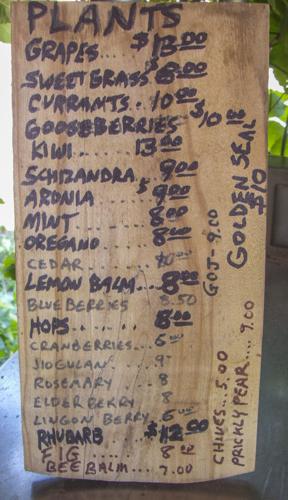 PLANTS
GRAPES... $13.00
SWEETGRASS $6.00
CURRANTS.. 10.00
GOOSEBERRIES $10
KIWI...... 13.00
SCHIZANDRA. 9.00
ARONIA..... $9.00
MINT....... 8.00
OREGANO.... 8.00
CEDAR...... 10.00
LEMON BALM... 8.00
BLUEBERRIES 8.50
HOPS....... 8.00
CRANBERRIES... 6.00
JIOGULAN.. 9-
ROSEMARY.. 8
ELDERBERRY 8
LINGON BERRY 6.00
RHUBARB $12.00
FIG 8
BEE BALM... 7.00
GOJI-9.00
GOLDEN SEAL
$10
CHIVES...5.00
PRICKLY PEAR.... 9.00